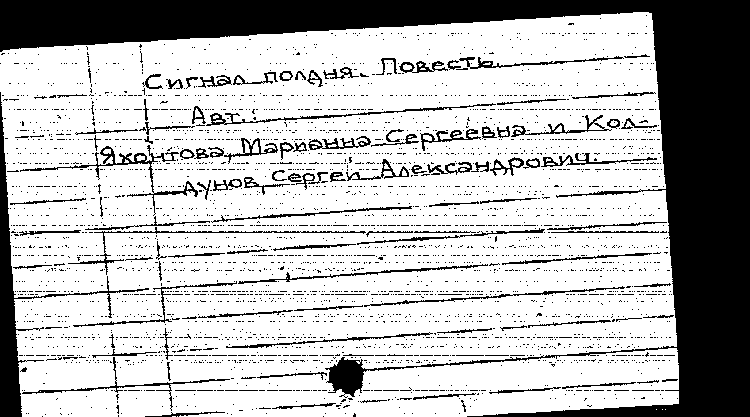 Сигнал полдня. Повесть.
Авт.:
Яхонтова, Марианна Сергеевна и Кол-
дунов, Сергей Александрович.